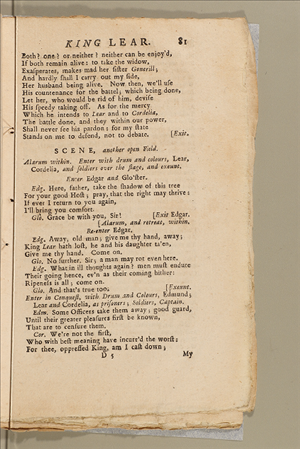 KING LEAR. 81
Both? one? or neither? neither can be enjoy'd,
If both remain alive: to take the widow,
Exasperates, makes mad her sister Gonerill;
And hardly shall I carry out my side,
Her husband being alive. Now then, we'll use
His countenance for the battel; which being done,
Let her, who would be rid of him, devise
His speedy taking off. As for the mercy
Which he intends to Lear and to Cordelia,
The battle done, and they within our power,
Shall never see his pardon: for my state
Stands on me to defend, not to debate. [Exit.
SCENE, another open Field.
Alarum within. Enter with drum and colours, Lear,
Cordelia, and soldiers over the stage, and exeunt.
Enter Edgar and Glo'ster.
Edg. Here, father, take the shadow of this tree
For your good Host; pray, that the right may thrive:
If ever I return to you again,
I'll bring you comfort.
Glo. Grace be with you, Sir! [Exit Edgar.
[Alarum, and retreat, within.
Re-enter Edgar.
Edg. Away, old man; give me thy hand, away;
King Lear hath lost, he and his daughter ta'en,
Give me thy hand. Come on.
Glo. No further, Sir; a man may rot even here.
Edg. What, in ill thoughts again? men must endure
Their going hence, ev'n as their coming hither:
Ripeness is all; come on.
Glo. And that's true too. [Exeunt.
Enter in Conquest, with Drum and Colours, Edmund;
Lear and Cordelia, as prisoners; Soldiers, Captain.
Edm. Some Officers take them away; good guard,
Until their greater pleasures first be known,
That are to censure them.
Cor. We're not the first,
Who with best meaning have incurr'd the worst:
For thee, oppressed King, am I cast down;
D 5 My